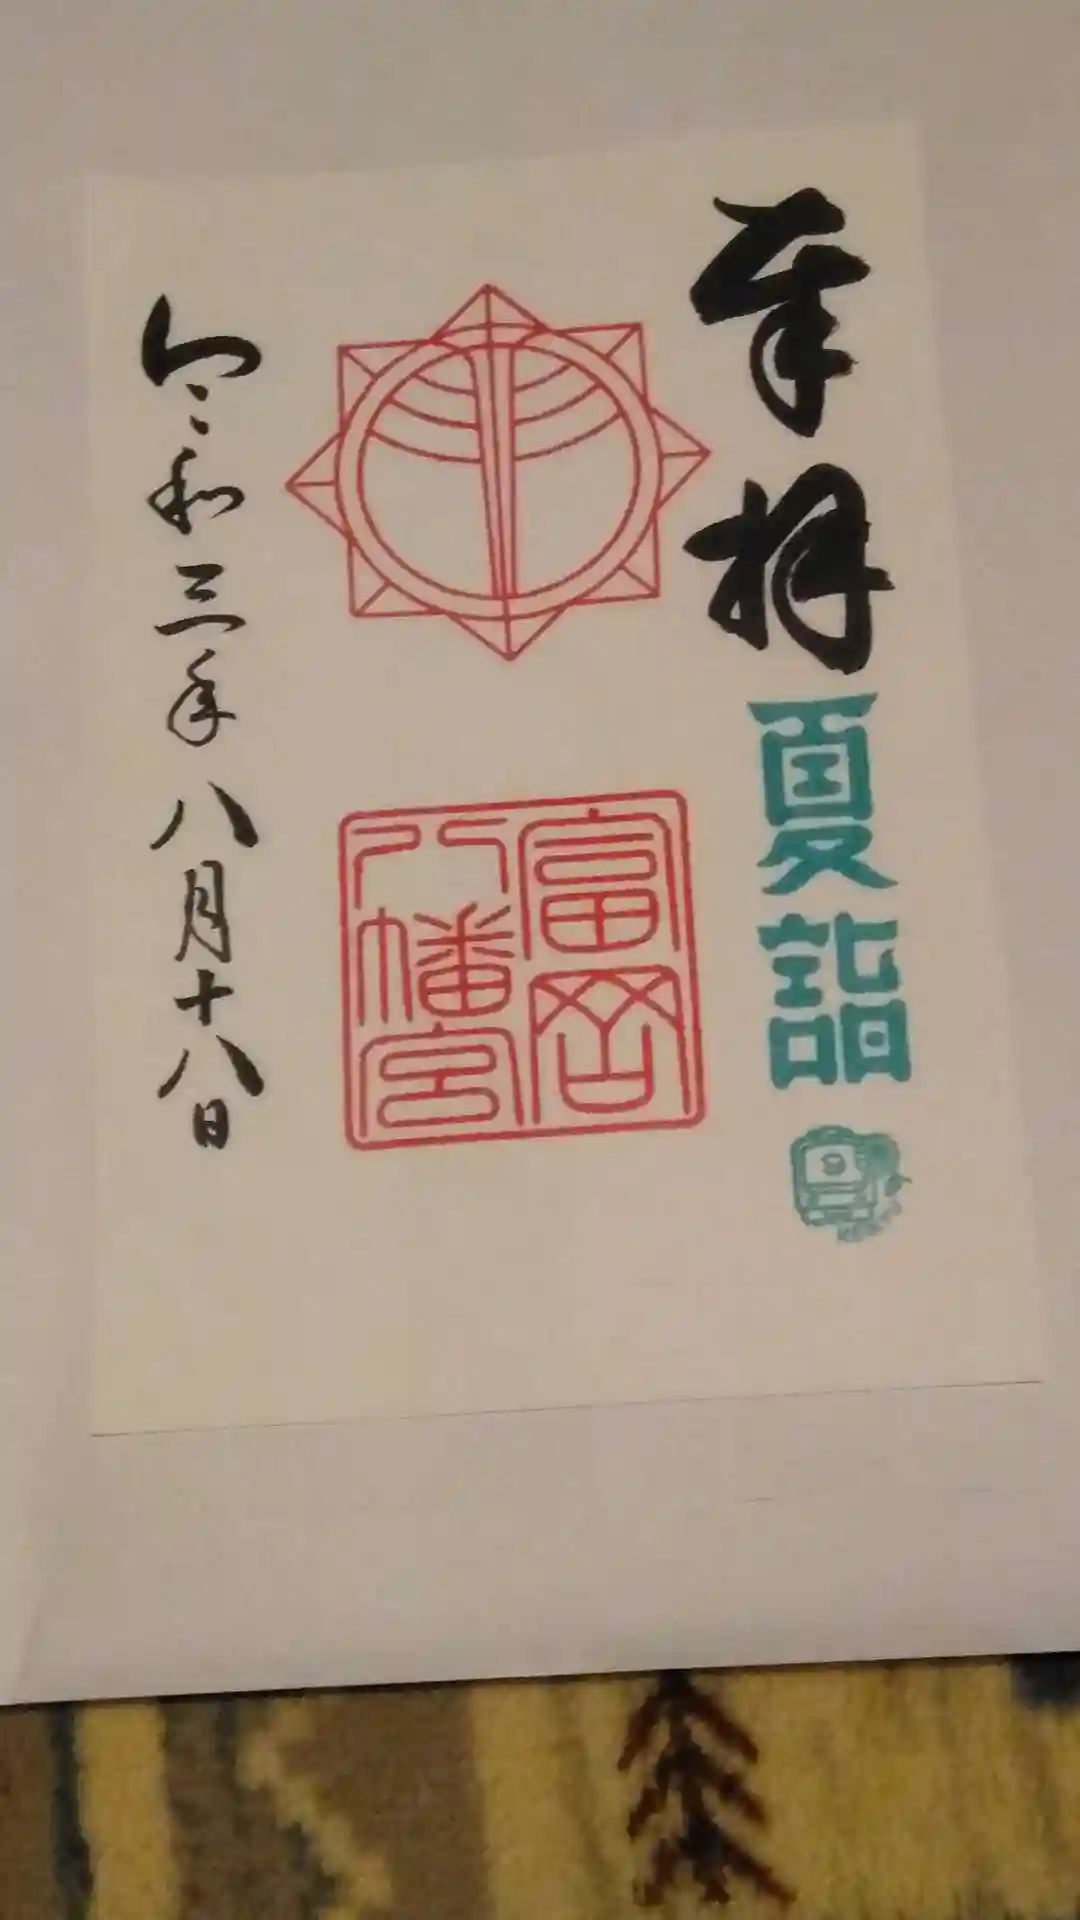 奉拝
夏詣
富岡
八幡宮
令和三年八月十八日